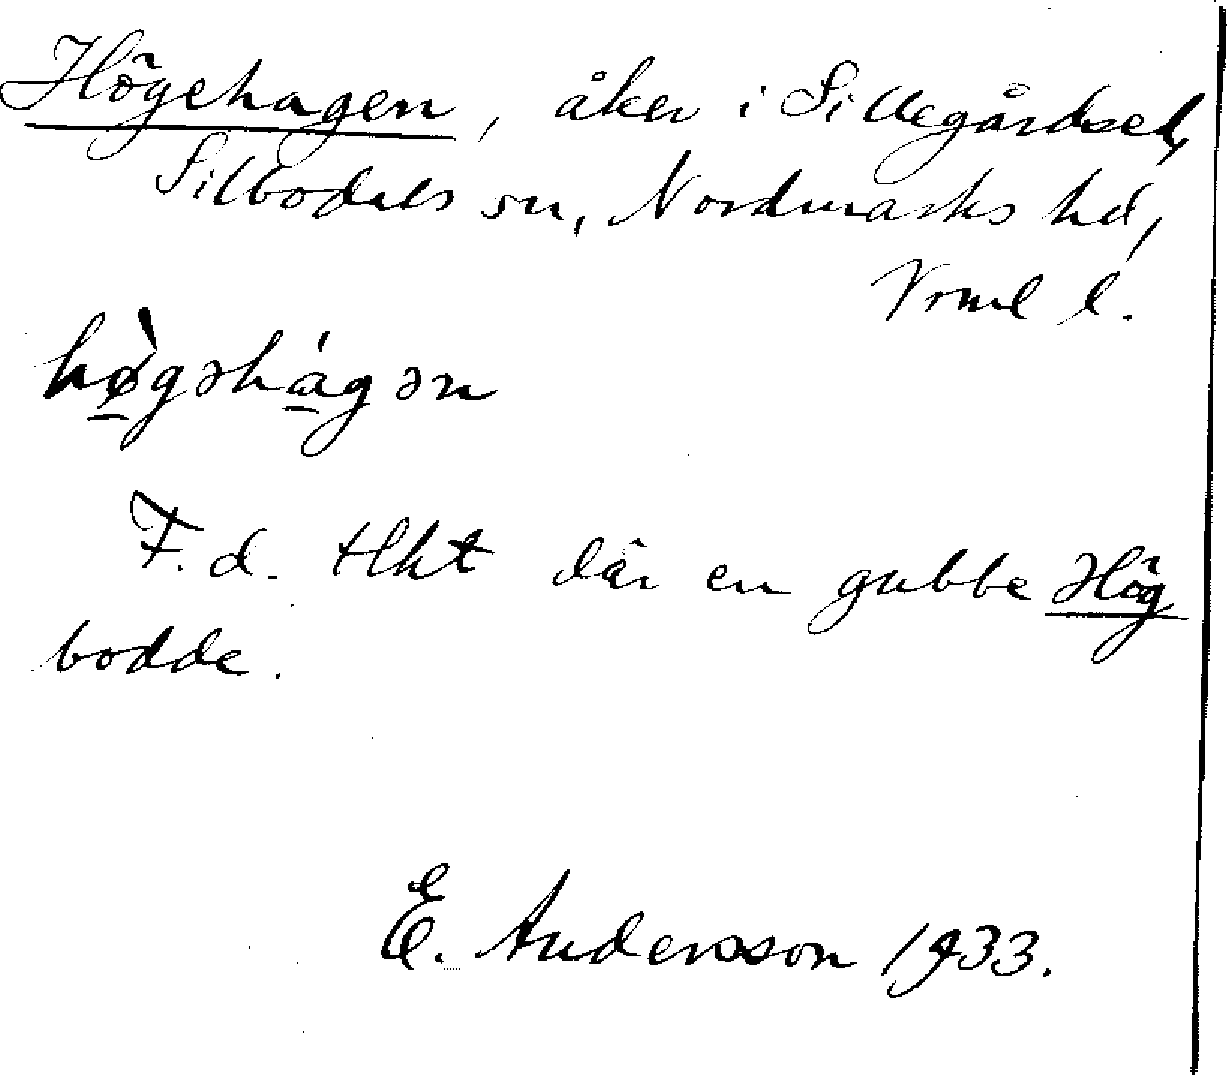 Högehagen, åker i Sillegårdsed,
Silbodals sn, Nordmarks hd,
Vrml l.
hø̠̀gəhá̠gən
F.d. tlht där en gubbe Hög
bodde.
E. Andersson 1933.